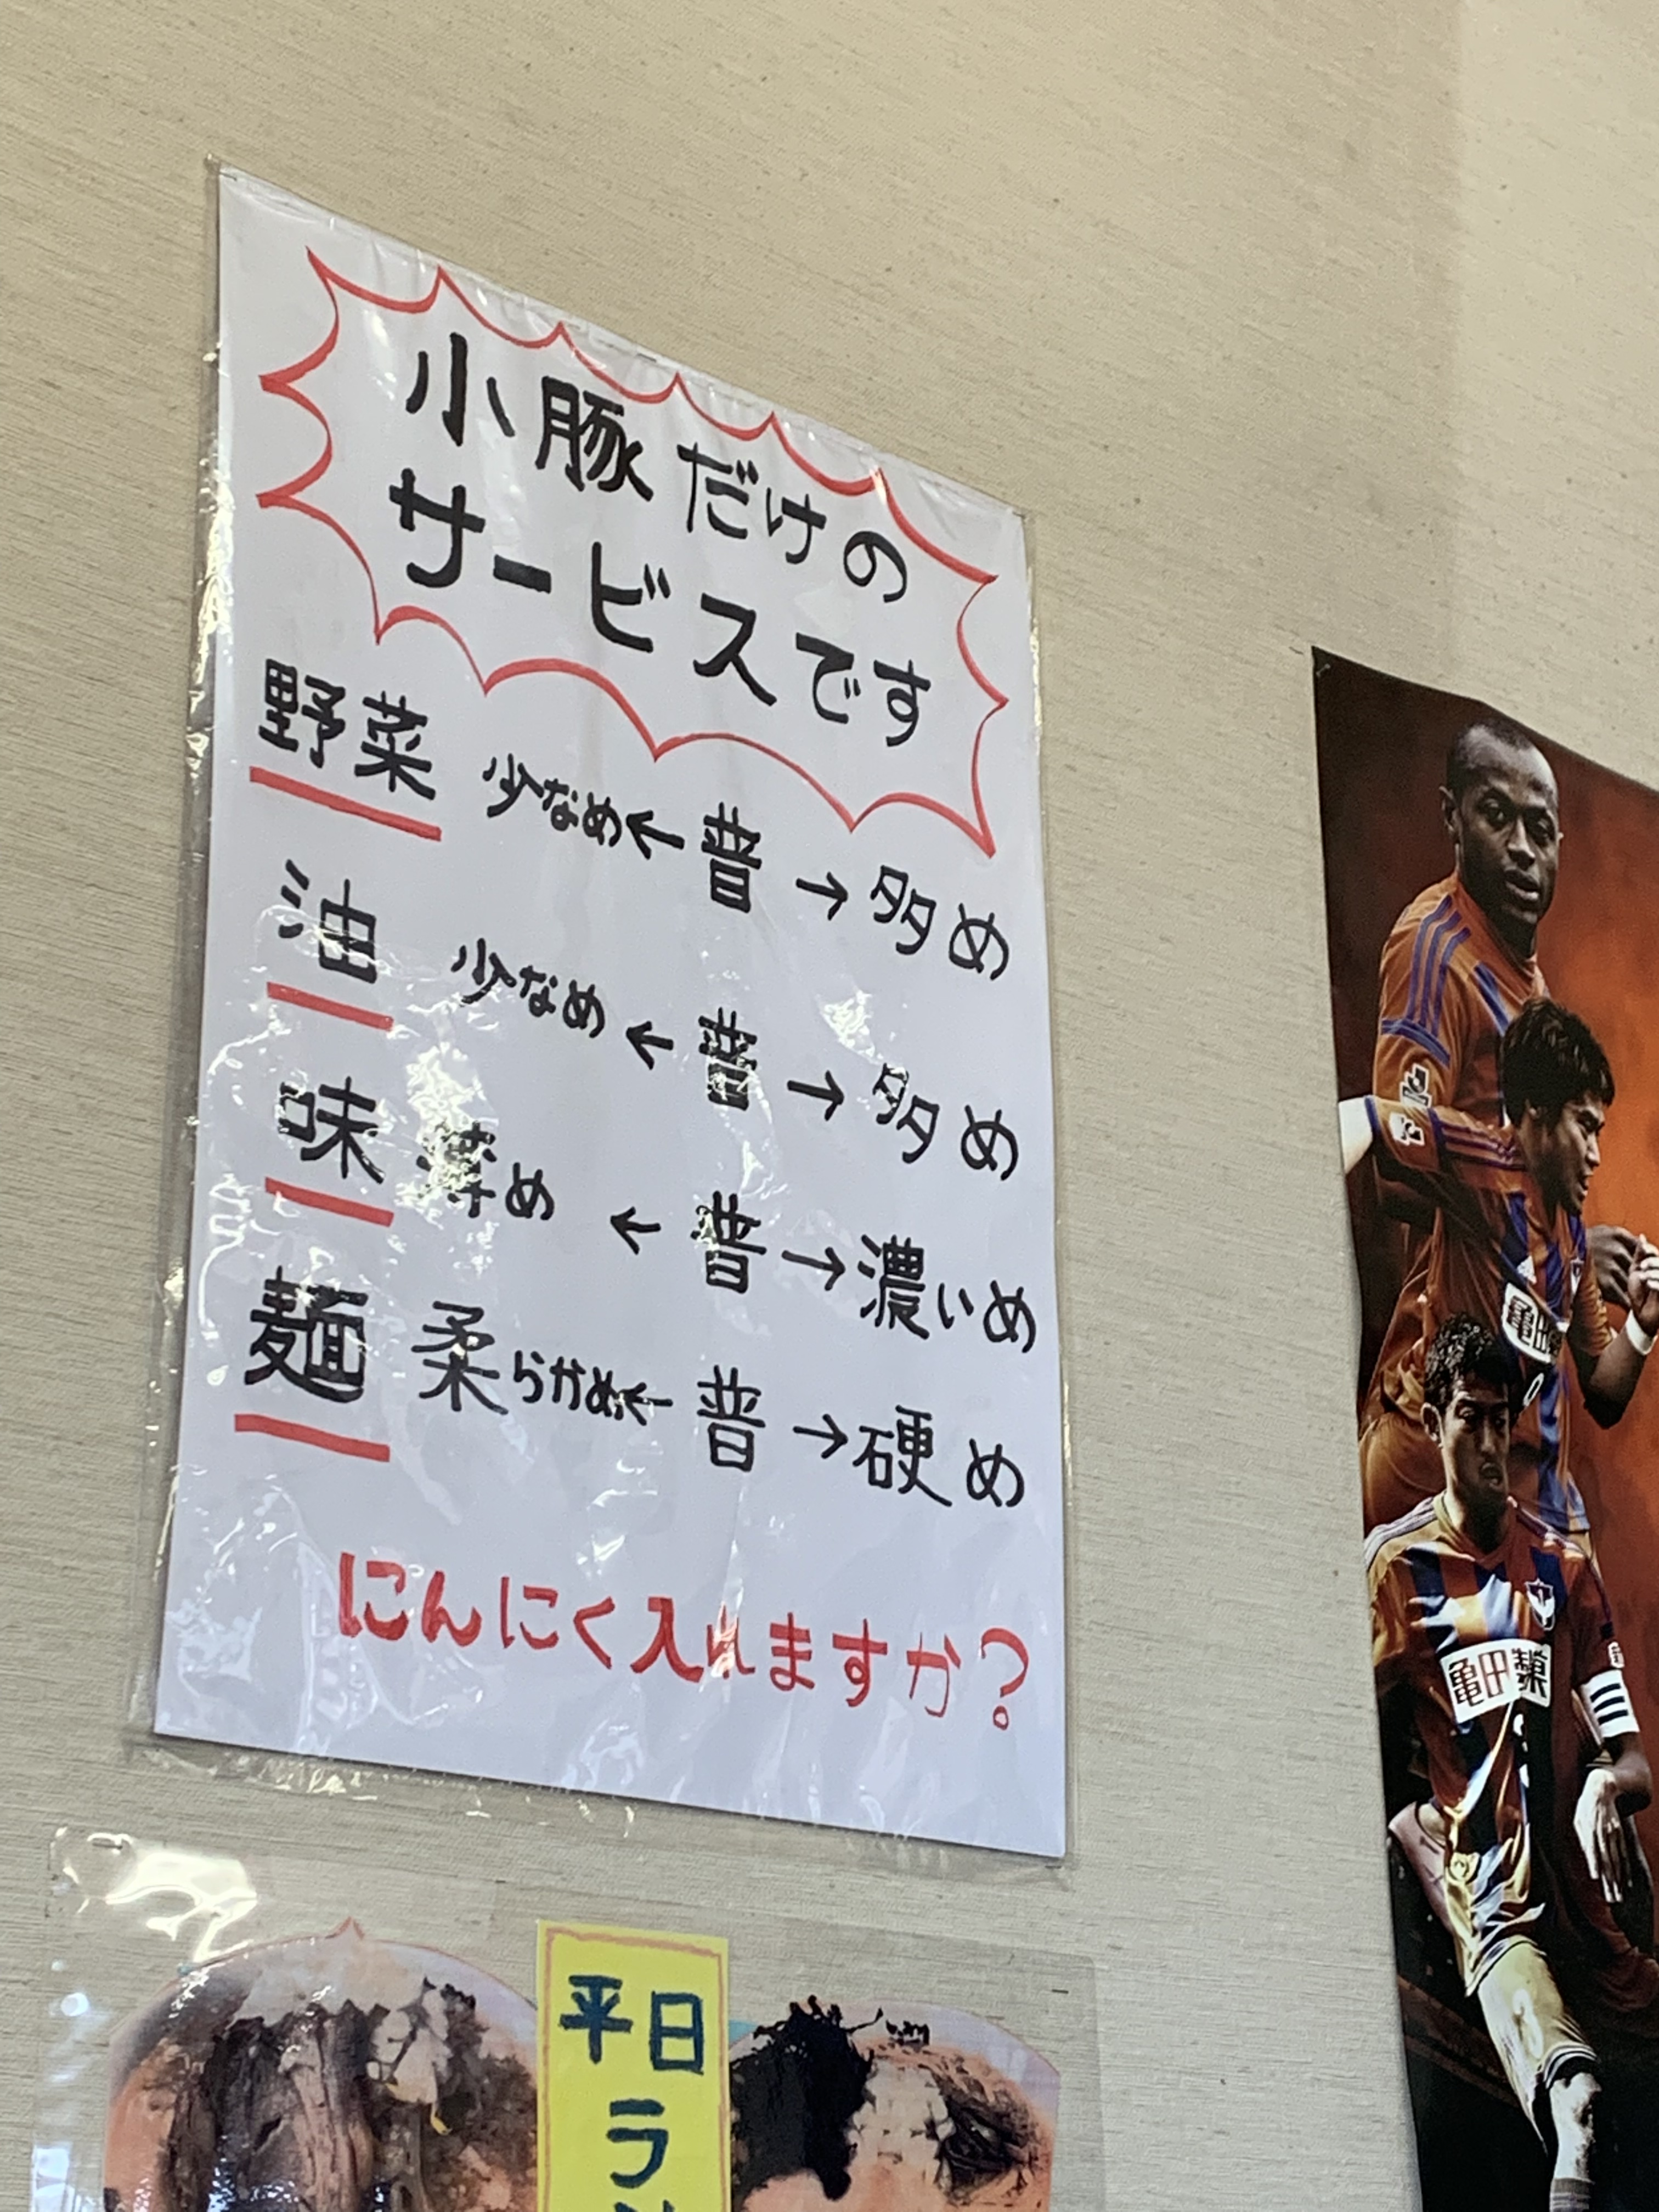 小豚だけの
サービスです
野菜 少なめ ← 普 → 多め
油 少なめ ← 普 → 多め
味 薄め ← 普 → 濃いめ
麺 柔らかめ ← 普 → 硬め
にんにく入れますか?
平日
ラ
亀田
亀田製菓